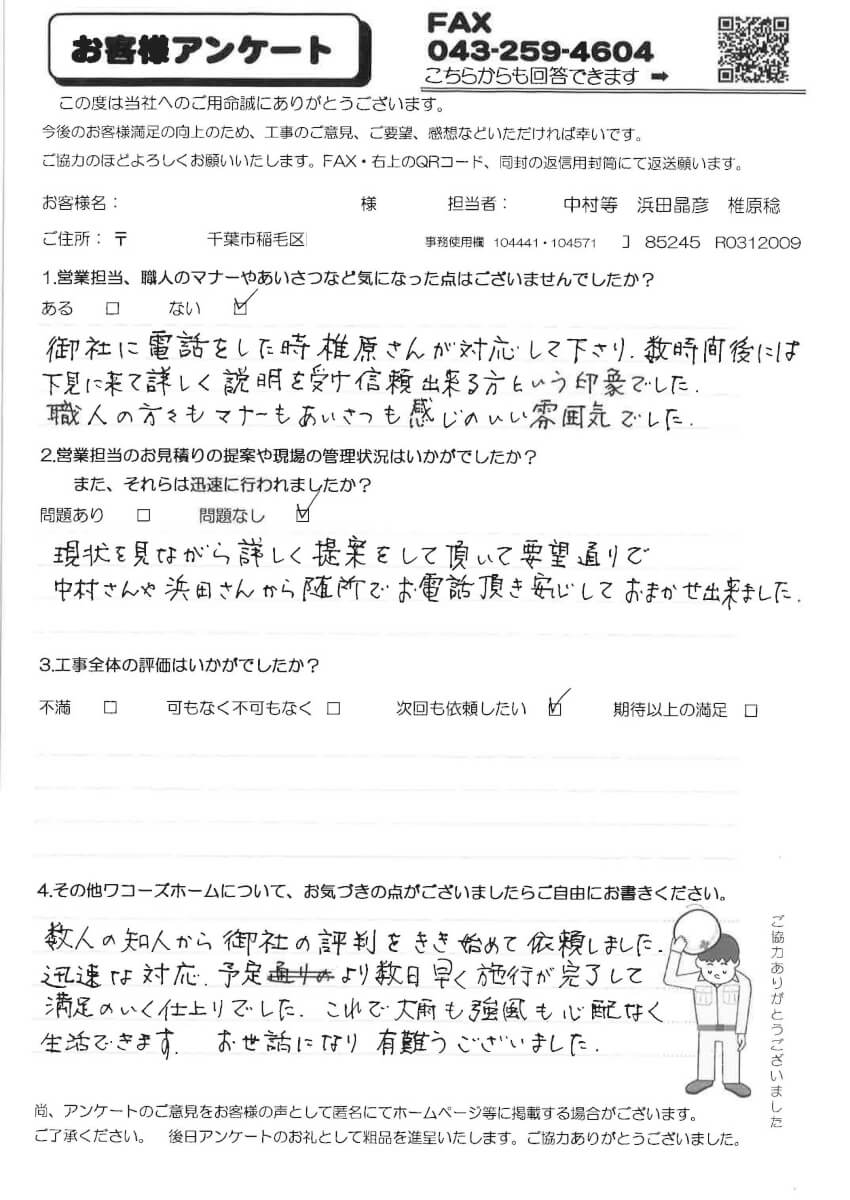 お客様アンケート
FAX
043-259-4604
こちらからも回答できます ➡
この度は当社へのご用命誠にありがとうございます。
今後のお客様満足の向上のため、工事のご意見、ご要望、感想などいただければ幸いです。
ご協力のほどよろしくお願いいたします。FAX・右上のQRコード、同封の返信用封筒にて返送願います。
お客様名： 様 担当者： 中村等 浜田晶彦 椎原稔
ご住所：〒 千葉市稲毛区 事務使用欄 104441・104571 ] 85245 R0312009
1.営業担当、職人のマナーやあいさつなど気になった点はございませんでしたか？
ある □ ない ☑
御社に電話をした時椎原さんが対応して下さり、数時間後には
下見に来て詳しく説明を受け信頼出来る方という印象でした.
職人の方々もマナーもあいさつも感じのいい雰囲気でした.
2.営業担当のお見積りの提案や現場の管理状況はいかがでしたか？
また、それらは迅速に行われましたか？
問題あり □ 問題なし ☑
現状を見ながら詳しく提案をして頂いて要望通りで
中村さんや浜田さんから随所でお電話頂き安心しておまかせ出来ました.
3.工事全体の評価はいかがでしたか？
不満 □ 可もなく不可もなく □ 次回も依頼したい ☑ 期待以上の満足 □
4.その他ワコーズホームについて、お気づきの点がございましたらご自由にお書きください。
数人の知人から御社の評判をきき始めて依頼しました.
迅速な対応、予定通りのより数日早く施行が完了して
満足のいく仕上りでした. これで大雨も強風も心配なく
生活できます. お世話になり有難うございました.
ご協力ありがとうございました
尚、アンケートのご意見をお客様の声として匿名にてホームページ等に掲載する場合がございます。
ご了承ください。 後日アンケートのお礼として粗品を進呈いたします。ご協力ありがとうございました。